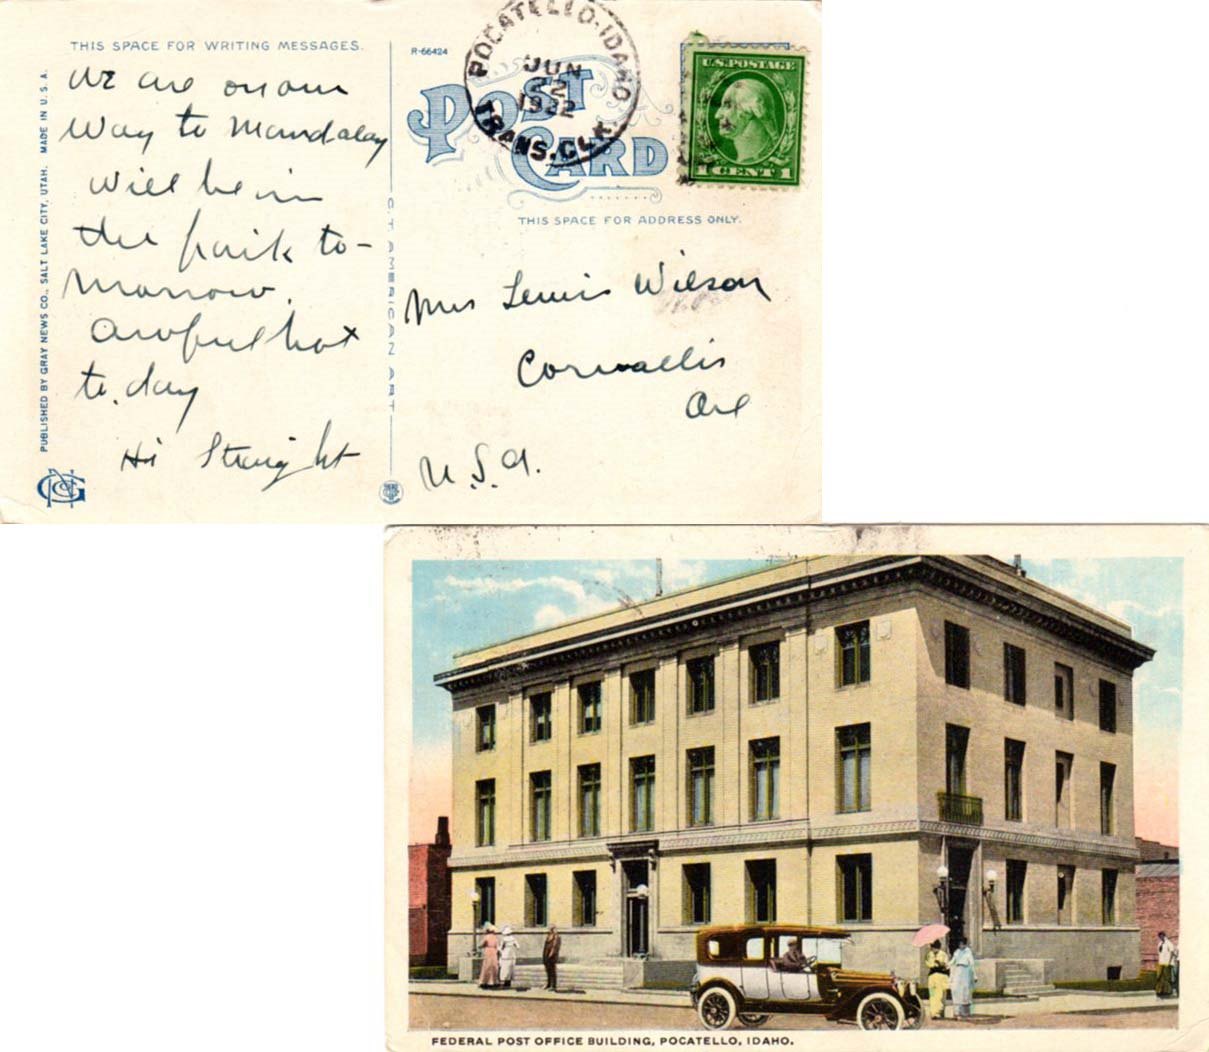 THIS SPACE FOR WRITING MESSAGES.
we are on our
way to Mandalay
will be in
the park to-
morrow.
Awful hot
to.day
Hi Straight
PUBLISHED BY GRAY NEWS CO., SALT LAKE CITY, UTAH. MADE IN U.S.A.
C.T. AMERICAN ART
R-66424
POST CARD
POCATELLO, IDAHO
JUN
22
1922
TRANS. CLK.
U.S. POSTAGE
1 CENT 1
THIS SPACE FOR ADDRESS ONLY.
Mrs Lewis Wilson
Corvallis
Ore
U.S.A.
FEDERAL POST OFFICE BUILDING, POCATELLO, IDAHO.